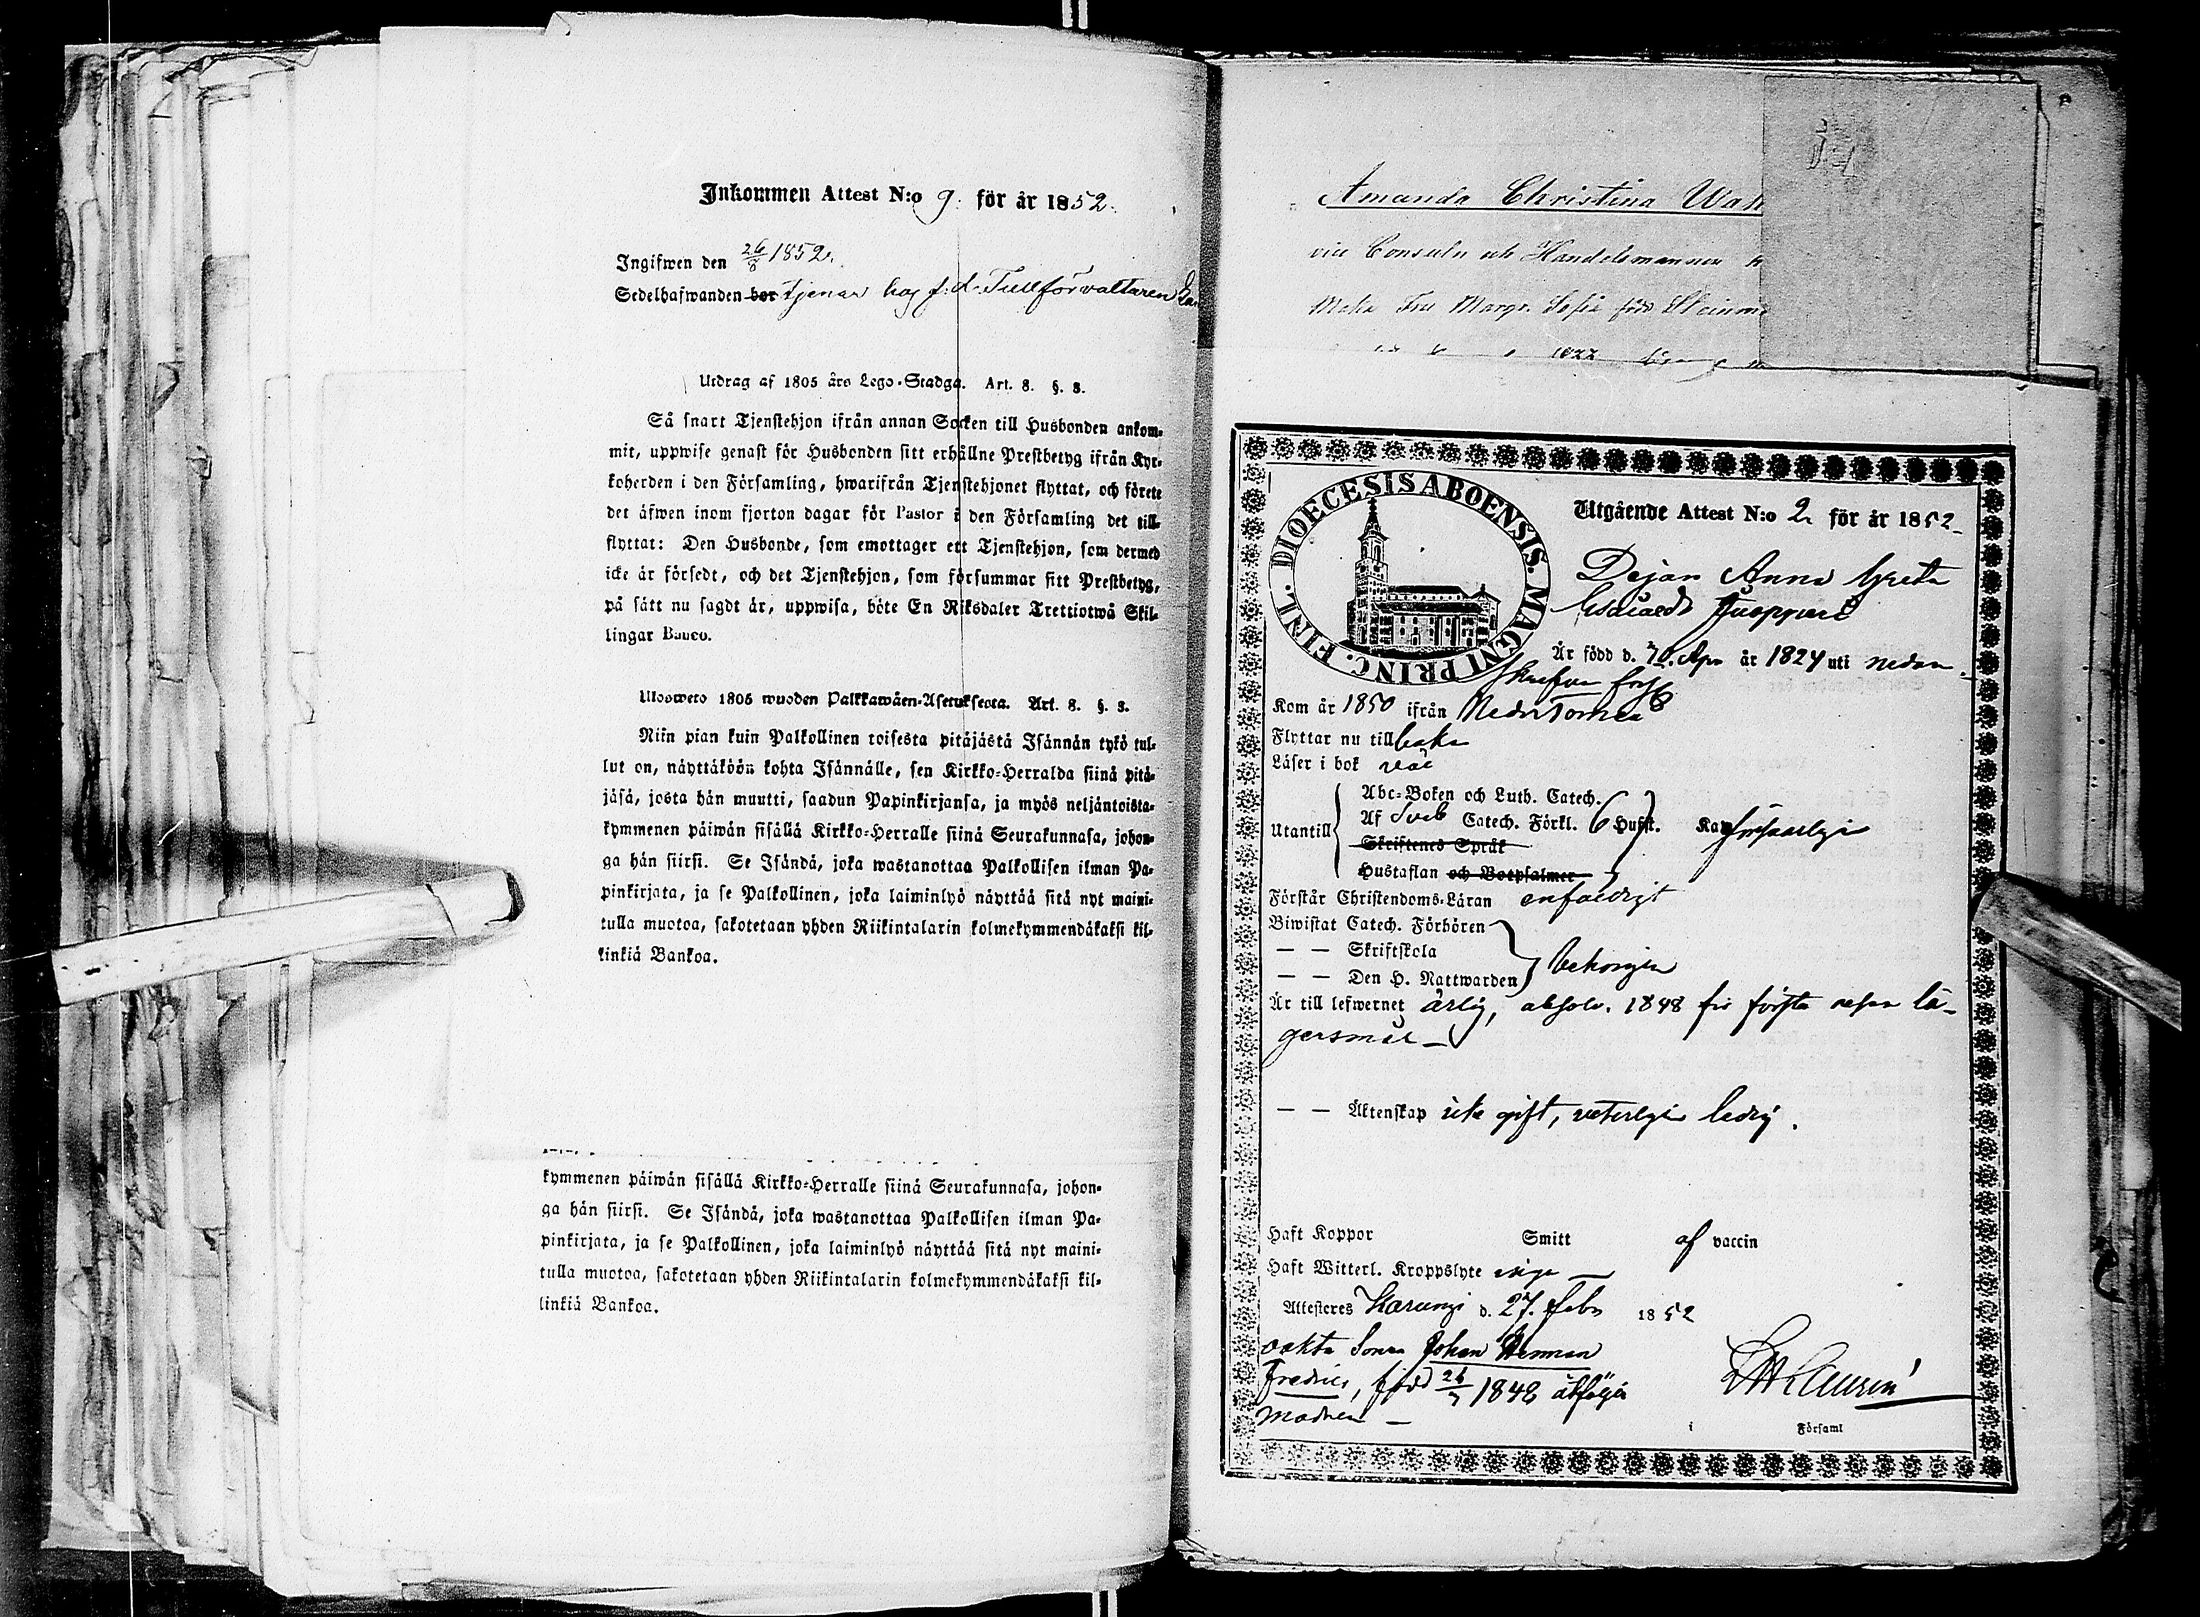 Inkommen Attest N:o 9. för år 1852.
Ingifwen den 26/8 1852.
Sedelhafwanden bor tjenar hos f. d. Tullförvaltaren
Utdrag af 1805 års Lego-Stadga. Art. 8. §. 3.
Så snart Tjenstehjon ifrån annan Socken till Husbonden ankom-
mit, uppwise genast för Husbonden sitt erhållne Prestbetyg ifrån Kyr-
koherden i den Församling, hwarifrån Tjenstehjonet flyttat, och förete
det äfwen inom fjorton dagar för Pastor i den Församling det till-
flyttat: Den Husbonde, som emottager ett Tjenstehjon, som dermed
icke är försedt, och det Tjenstehjon, som försummar sitt Prestbetyg,
på sätt nu sagdt är, uppwisa, böte En Riksdaler Trettiotwå Skil-
lingar Banco.
Ulosweto 1805 wuoden Palkkawäen-Asetuksesta. Art. 8. §. 3.
Niin pian kuin Palkollinen toisesta pitäjästä Isännän tykö tul-
lut on, näyttäköön kohta Isännälle, sen Kirkko-Herralda siinä pitä-
jäsä, josta hän muutti, saadun Papinkirjansa, ja myös neljäntoista-
kymmenen päiwän sisällä Kirkko-Herralle siinä Seurakunnasa, johon-
ga hän siirsi. Se Isändä, joka wastanottaa Palkollisen ilman Pa-
pinkirjata, ja se Palkollinen, joka laiminlyö näyttää sitä nyt maini-
tulla muotoa, sakotetaan yhden Riikintalarin kolmekymmendäkaksi kil-
linkiä Bankoa.
kymmenen päiwän sisällä Kirkko-Herralle siinä Seurakunnasa, johon-
ga hän siirsi. Se Isändä, joka wastanottaa Palkollisen ilman Pa-
pinkirjata, ja se Palkollinen, joka laiminlyö näyttää sitä nyt maini-
tulla muotoa, sakotetaan yhden Riikintalarin kolmekymmendäkaksi kil-
linkiä Bankoa.
Amanda Christina
vice Consuln och Handelsmannen
Maka Fru Margr. Sofia född
1822
DIOECESIS ABOENSIS. MAGNI PRINC. FINL.
Utgående Attest N:o 2 för år 1852
Pigan Anna Greta
Är född d. Apr år 1824 uti nedan
skrefne förs
Kom år 1850 ifrån Neder Torneå
Flyttar nu tillbaka
Läser i bok
Utantill Abc-Boken och Luth. Catech.
Af Sveb Catech. Förkl. 6 Hufst. Kan försvarligen
Skriftenes Språk
Hustaflan och Botpsalmer
Förstår Christendoms-Läran enfaldigt
Biwistat Catech. Förhören
— — Skriftskola
— — Den H. Nattwarden behörigen
Är till lefwernet ärlig, absolv. 1848 för första resan lä-
gersmål —
— — Äktenskap icke gift, veterligen ledig.
Haft Koppor Smitt af vaccin
Haft Witterl. Kroppslyte inga —
Attesteres Karungi d. 27. Febr 1852
oäkta Sonen Johan Herman
Fredric, född 26/7 1848 åtföljer
modren —
i Församl